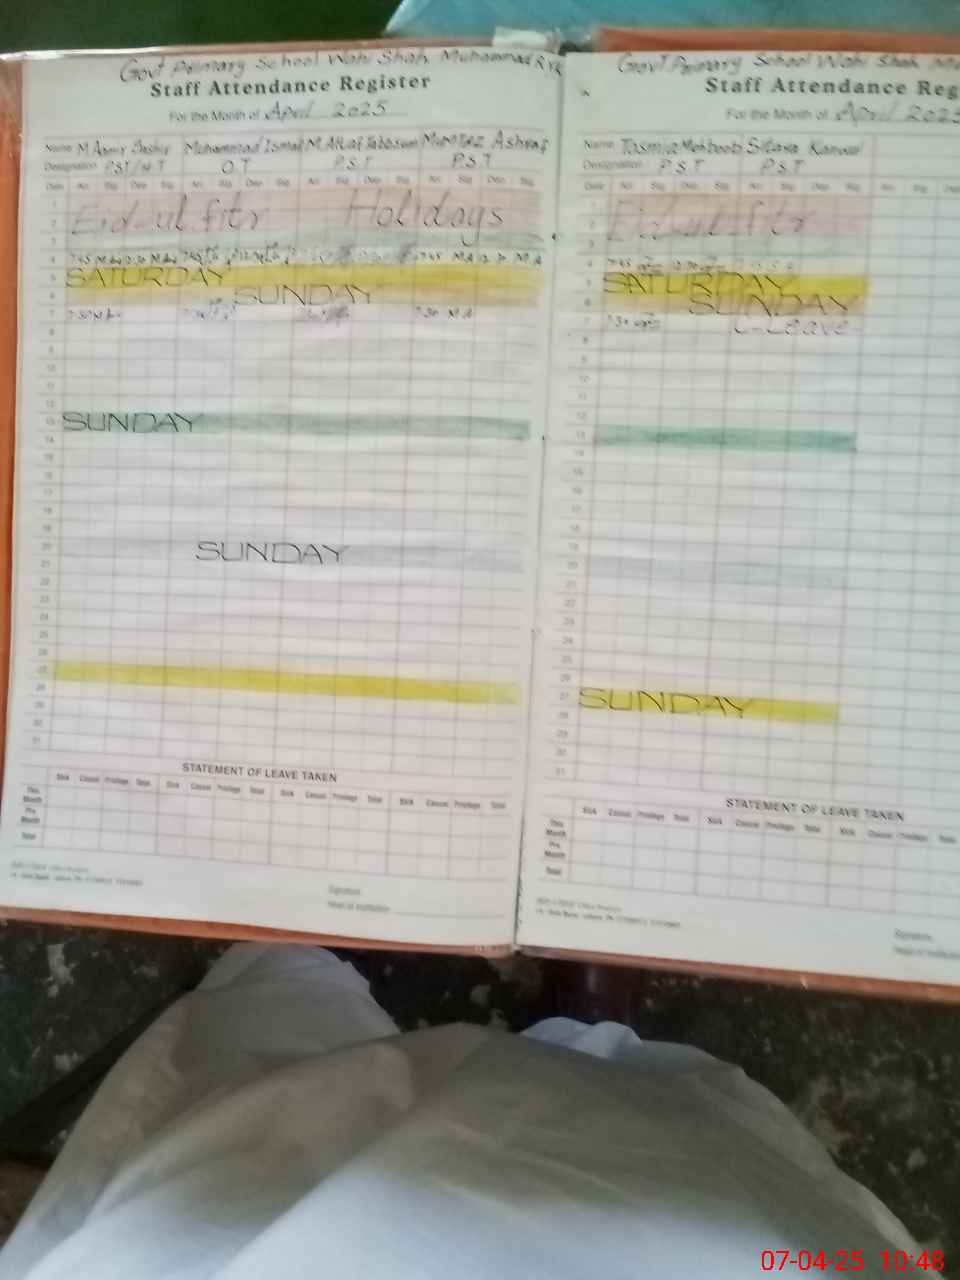 Govt Primary School Wahi Shah Muhammad R.Y.K
Staff Attendance Register
For the Month of April 2025
Name M.Aamir Bashir Muhammad Ismail M.Altaf Tabbsum Mumtaz Ashraf
Designation P.S.T/H.T O.T P.S.T P.S.T
Date Arr. Sig. Dep. Sig. Arr. Sig. Dep. Sig. Arr. Sig. Dep. Sig. Arr. Sig. Dep. Sig.
1
2 Eid-ul-fitr Holidays
3
4 7:45 12:30 7:45 12:30 7:45 M.A 12:30 M.A
5 SATURDAY
6 SUNDAY
7 7:30 7:30 7:30 M.A
8
9
10
11
12
13 SUNDAY
14
15
16
17
18
19
20 SUNDAY
21
22
23
24
25
26
27
28
29
30
31
STATEMENT OF LEAVE TAKEN
Sick Casual Privilege Total Sick Casual Privilege Total Sick Casual Privilege Total Sick Casual Privilege Total
This Month
Pre. Month
Total
Signature
Head of Institution
Govt Primary School Wahi Shah
Staff Attendance Reg
For the Month of April 2025
Name Tasmia Mehboob Sitara Kanwal
Designation P.S.T P.S.T
Date Arr. Sig. Dep. Sig. Arr. Sig. Dep. Sig. Arr. Sig. Dep.
1
2 Eid-ul-fitr
3
4 7:45 12:30
5 SATURDAY
6 SUNDAY
7 7:30 C-Leave
8
9
10
11
12
13
14
15
16
17
18
19
20
21
22
23
24
25
26
27 SUNDAY
28
29
30
31
STATEMENT OF LEAVE TAKEN
Sick Casual Privilege Total Sick Casual Privilege Total Sick Casual Privilege Total
This Month
Pre. Month
Total
Signature
Head of Institution
07-04-25 10:48